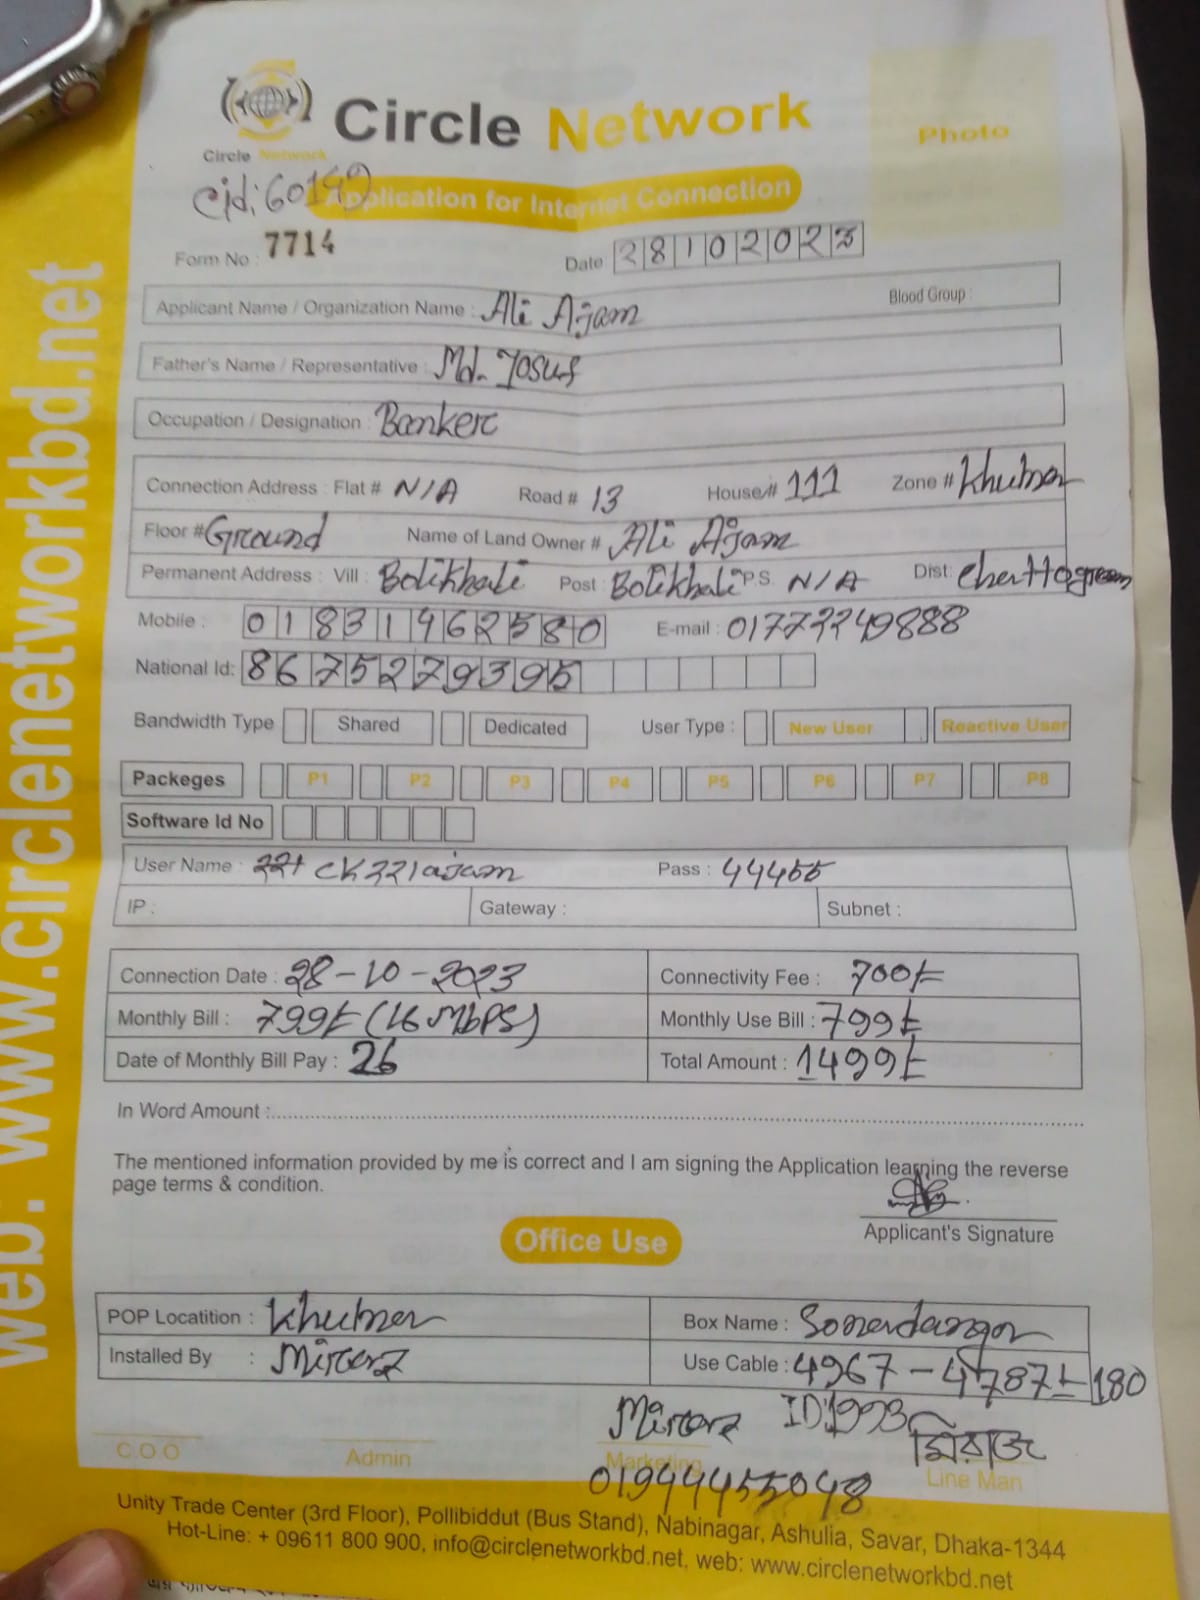 Circle Network
Photo
Circle Network
Cid: 60149
Application for Internet Connection
Form No : 7714
Date 28102023
Applicant Name / Organization Name : Ali Ajam
Blood Group :
Father's Name / Representative : Md. Yosuf
Occupation / Designation : Banker
Connection Address : Flat # N/A Road # 13 House# 111 Zone # Khulna
Floor # Ground Name of Land Owner # Ali Ajam
Permanent Address : Vill : Bolikhali Post : Bolikhali P.S. N/A Dist: Chattogram
Mobile : 01831962580 E-mail : 01777249888
National Id: 8675279395
Bandwidth Type Shared Dedicated User Type : New User Reactive User
Packeges P1 P2 P3 P4 P5 P6 P7 P8
Software Id No
User Name : ck221ajam Pass : 44455
IP : Gateway : Subnet :
Connection Date : 28-10-2023 Connectivity Fee : 700/-
Monthly Bill : 799/- (16 Mbps) Monthly Use Bill : 799/-
Date of Monthly Bill Pay : 26 Total Amount : 1499/-
In Word Amount :
The mentioned information provided by me is correct and I am signing the Application learning the reverse
page terms & condition.
Applicant's Signature
Office Use
POP Locatition : Khulna Box Name : Sonadanga
Installed By : Miraz Use Cable : 4967 - 4787 = 180
Miraz ID:1993 মিরাজ
C.O.O Admin Marketing Line Man
01944455048
Unity Trade Center (3rd Floor), Pollibiddut (Bus Stand), Nabinagar, Ashulia, Savar, Dhaka-1344
Hot-Line: + 09611 800 900, info@circlenetworkbd.net, web: www.circlenetworkbd.net
web: www.circlenetworkbd.net